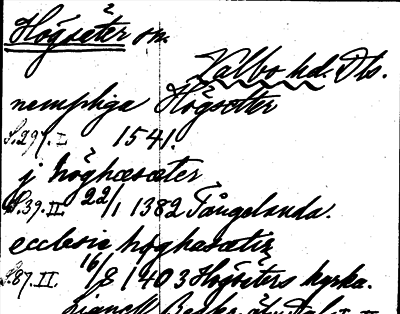 Högsäter sn.
Valbo hd. Dls.
nempliga Högsetter
S.297.I 1541.
j høghæsæter
S.39.II. 22/1 1382 Tångelanda.
ecclesie høghasætir
S.87.II. 16/8 1403 Högsäters kyrka.